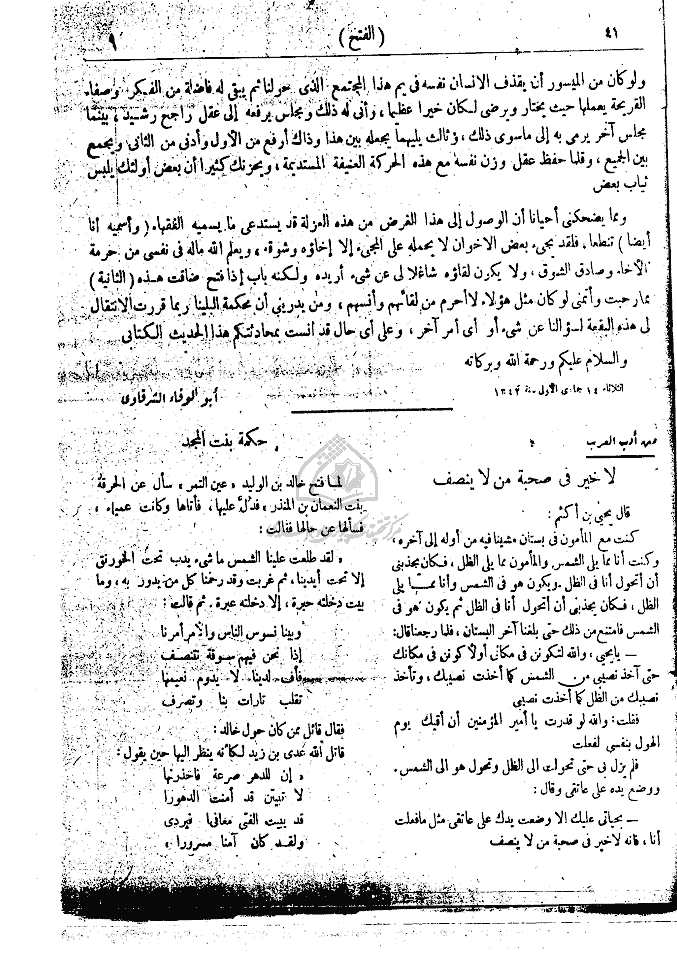 ٤١
( الفتح )
٩
ولو كان من الميسور أن يقذف الانسان نفسه فى يم هذا المجتمع الذى حولنا ثم يبقى له فاضلة من الفكر وصفاء
القريحة يعملها حيث يختار ويرضى لكان خيرا عظيما، وأنى له ذلك ومجلس يرفعه إلى عقل راجح رشيد، بينما
مجلس آخر يرمى به إلى ماسوى ذلك، وثالث يليهما يجعله بين هذا وذاك أرفع من الأول وأدنى من الثانى ويجمع
بين الجميع، وقلما حفظ عقل وزن نفسه مع هذه الحركة العنيفة المستديمة، ويحزنك كثيرا أن بعض أولئك يلبس
ثياب بعض
ومما يضحكنى أحيانا أن الوصول إلى هذا الغرض من هذه العزلة قد يستدعى ما يسميه الفقهاء ( وأسميه أنا
أيضا ) تنطعا، فلقد يجىء بعض الاخوان لا يحمله على المجىء إلا إخاؤه وشوقه، ويعلم الله ماله فى نفسى من حرمة
الاخاء وصادق الشوق، ولا يكون لقاؤه شاغلا لى عن شىء أريده ولكنه باب إذا فتح ضاقت هذه ( الثانية )
بما رحبت وأتمنى لو كان مثل هؤلاء لا أحرم من لقائهم وأنسهم، ومن يدرينى أن محكمة البلينا ربما قررت الانتقال
لى هذه البقية لسؤالنا عن شىء أو أى أمر آخر، وعلى أى حال قد أنست بمحادثتكم هذا الحديث الكتابى
والسلام عليكم ورحمة الله وبركاته
الثلاثاء ١٤ جمادى الأولى سنة ١٣٤٣
أبو الوفاء الشرقاوى
من أدب العرب
لا خير فى صحبة من لا ينصف
قال يحيى بن أكثم :
كنت مع المأمون فى بستان مشينا فيه من أوله إلى آخره،
وكنت أنا مما يلى الشمس والمأمون مما يلى الظل، فكان يجذبنى
أن أتحول أنا فى الظل ويكون هو فى الشمس وأنا مما يلى
الظل، فكان يجذبنى أن أتحول أنا فى الظل ثم يكون هو فى
الشمس فامتنع من ذلك حتى بلغنا آخر البستان، فلما رجعنا قال:
— يا يحيى، والله لتكونن فى مكانى أولا كونن فى مكانك
حتى آخذ نصيبى من الشمس كما أخذت نصيبك، وتأخذ
نصيبك من الظل كما أخذت نصيبى
فقلت: والله لو قدرت يا أمير المؤمنين أن أقيك يوم
الهول بنفسى لفعلت
فلم يزل بى حتى تحولت الى الظل وتحول هو الى الشمس.
ووضع يده على عاتقى وقال :
— بحياتى عليك الا وضعت يدك على عاتقى مثل ما فعلت
أنا، فانه لا خير فى صحبة من لا ينصف
حكمة بنت المجد
لما فتح خالد بن الوليد « عين التمر » سأل عن الحرقة
بنت النعمان بن المنذر، فدل عليها، فأتاها وكانت عمياء،
فسألها عن حالها فقالت :
« لقد طلعت علينا الشمس ما شىء يدب تحت الخورنق
إلا تحت أيدينا، ثم غربت وقد رحمنا كل من يدور به، وما
بيت دخلته حبرة، إلا دخلته عبرة. ثم قالت :
وبينا نسوس الناس والأمر أمرنا
إذا نحن فيهم سوقة نتنصف
فأف لدنيا لا يدوم نعيمها
تقلب تارات بنا وتصرف
فقال قائل ممن كان حول خالد :
قاتل الله عدى بن زيد لكأنه ينظر اليها حين يقول :
« إن للدهر صرعة فاحذرنها
لا تبيتن قد أمنت الدهورا
قد يبيت الفتى معافى فيردى
ولقد كان آمنا مسرورا »